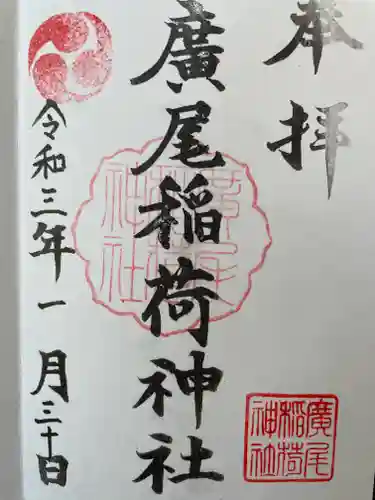 奉拝
廣尾稲荷神社
令和三年一月三十日
廣尾稲荷神社
廣尾稲荷神社